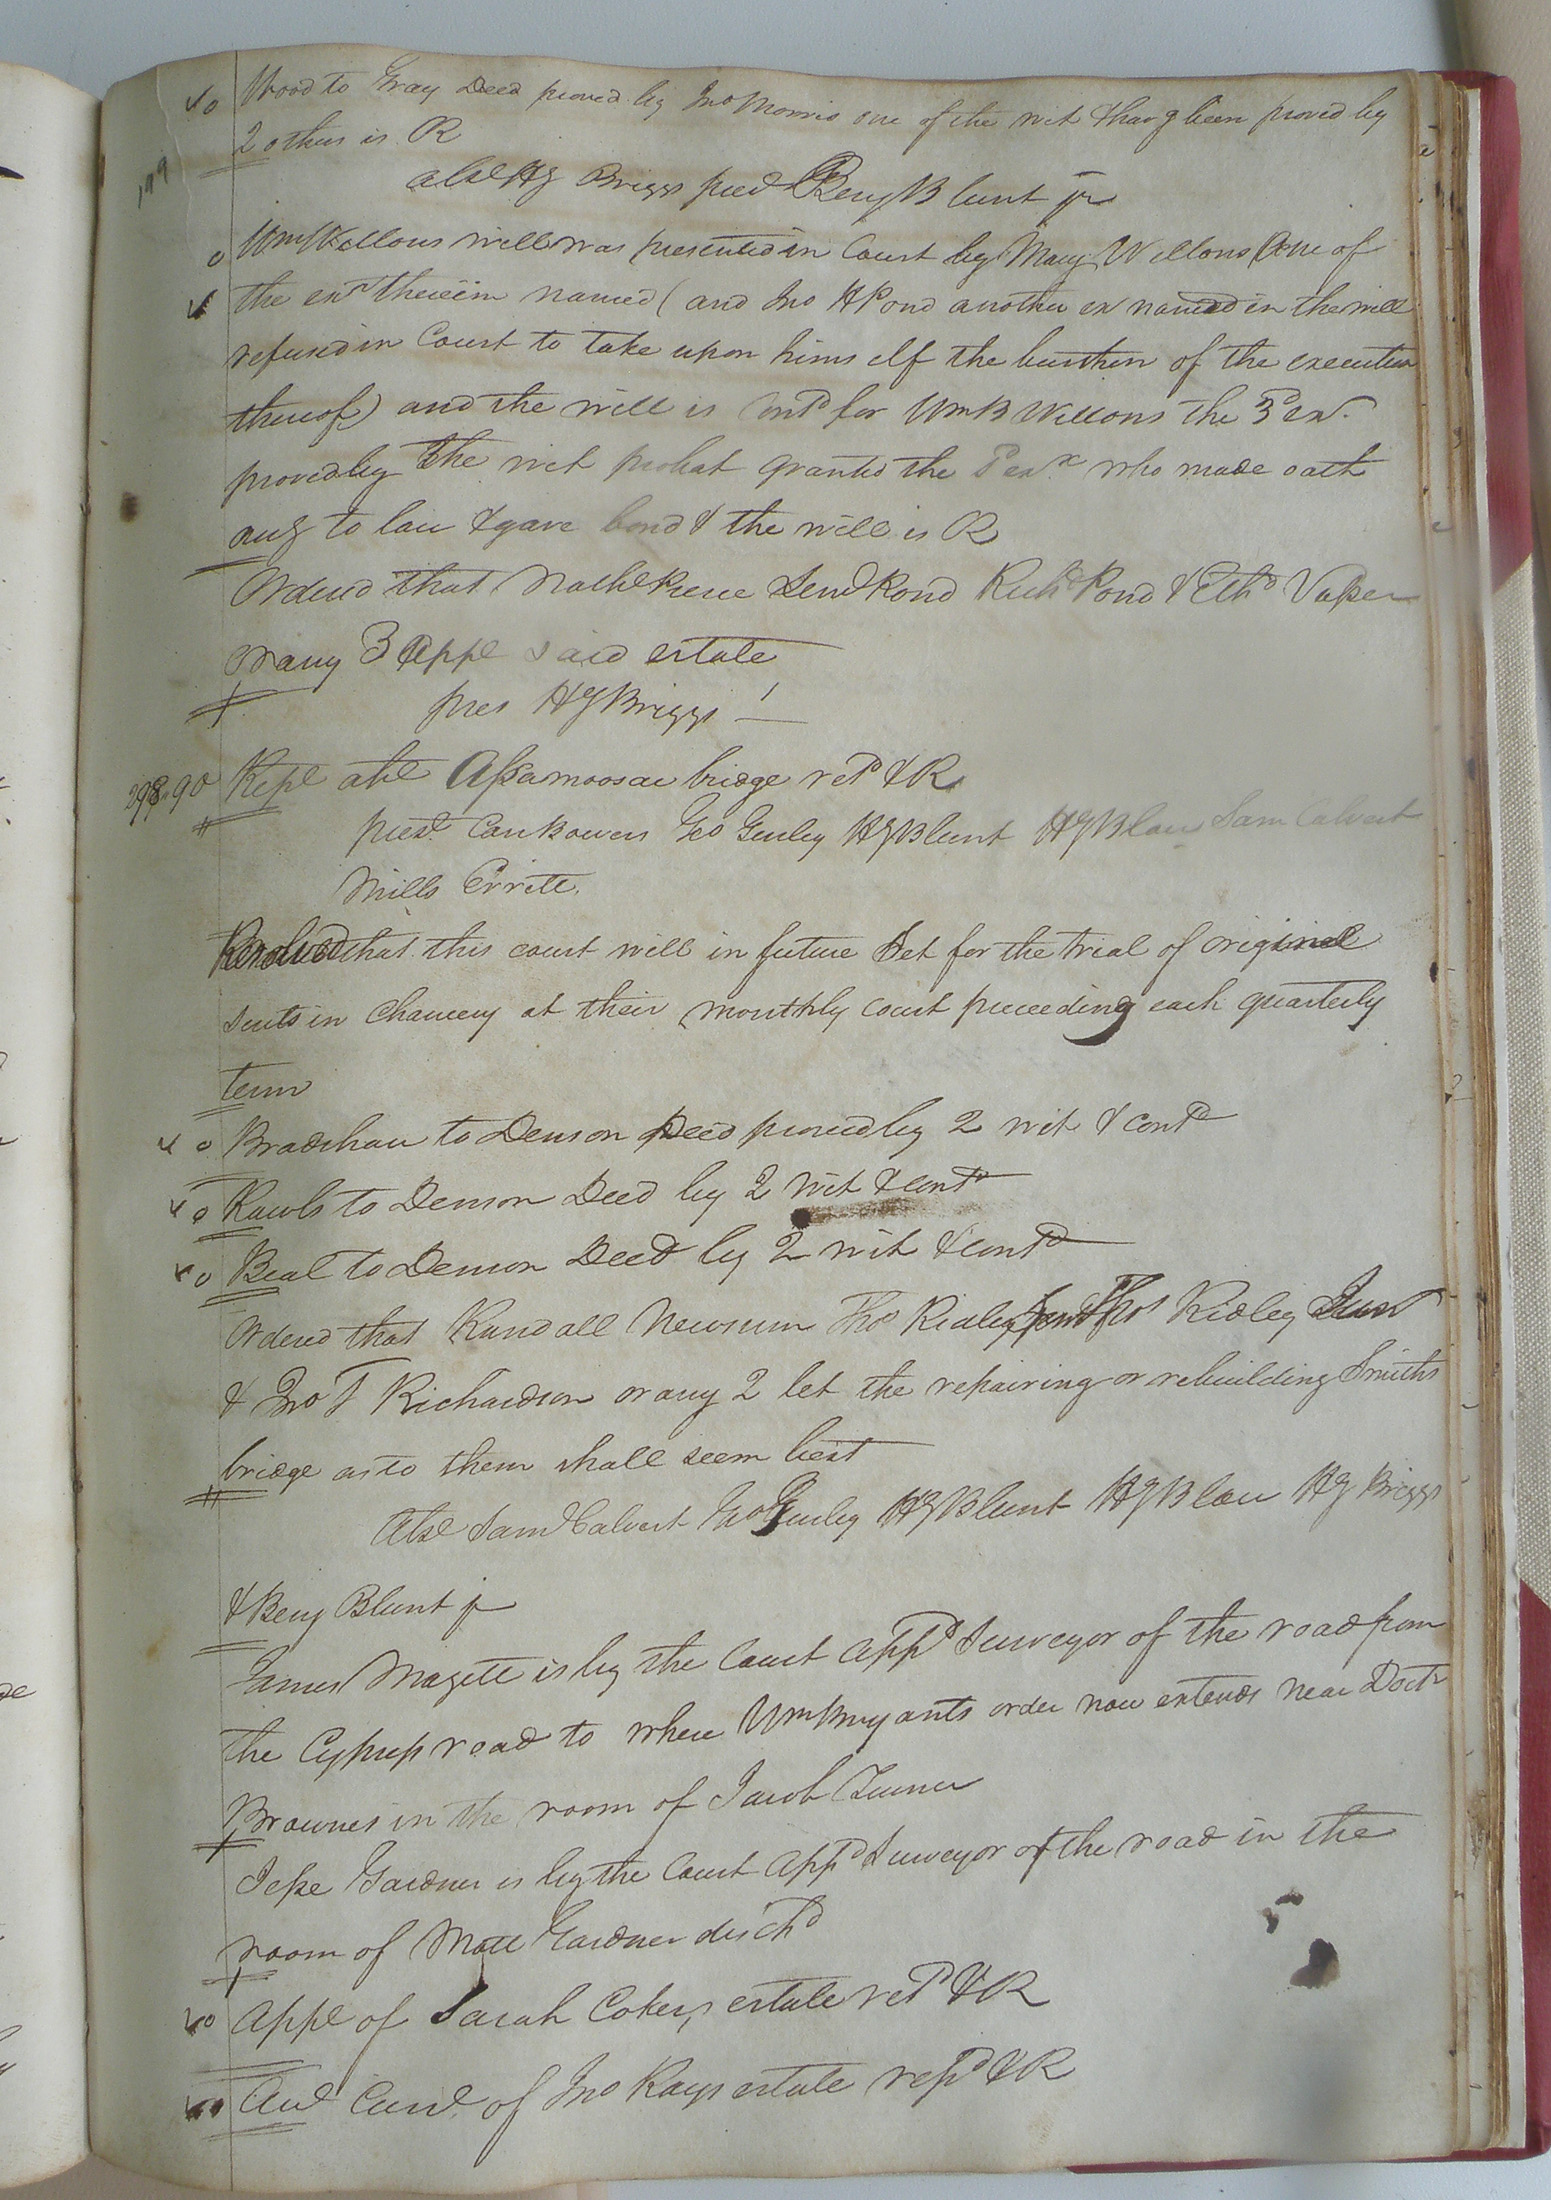 Wood to Gray Deed proved by Jno Morris one of the wit & havg been proved by
2 others is R
149
abs HG Briggs pred Benj Blunt jr
Wm Wellons will was presented in Court by Mary Wellons one of
the exrs therein named (and Jno H Pond another ex named in the will
refused in Court to take upon himself the burthen of the execution
thereof) and the will is contd for Wm B Wellons the 3d ex.
proved by the wit probat granted the sd exx who made oath
accg to law & gave bond & the will is R
Ordered that Nathl Pierce Saml Pond Richd Pond & Ethd Vasser
or any 3 Appe said estate
pres HG Briggs
Repl abt Assamoosac bridge retd & R
prest Bowers Geo Gurley HG Blunt HG Blow Sam Calvert
Mills Barrett
Resolved that this court will in future Set for the trial of original
suits in Chancery at their monthly court preceeding each quarterly
term
Bradshaw to Denson Deed proved by 2 wit & contd
Rawls to Denson Deed by 2 wit & contd
Beal to Denson Deed by 2 wit & contd
Ordered that Randall Newsum Thos Ridley Thos Ridley Junr
& Jno T Richardson or any 2 let the repairing or rebuilding Smiths
bridge as to them shall seem best
Abse Saml Calvert Geo Gurley HG Blunt HG Blow HG Briggs
& Benj Blunt jr
James Magett is by the Court appd Surveyor of the road from
the Cypress road to where Wm Bryants order now extends near Doctr
Brownes in the room of Jacob Turner
Jesse Gardner is by the Court appd Surveyor of the road in the
room of Matt Gardner dischd
Appe of Sarah Cokers estate retd & R
Aud Curr. of Jno Kays estate retd & R